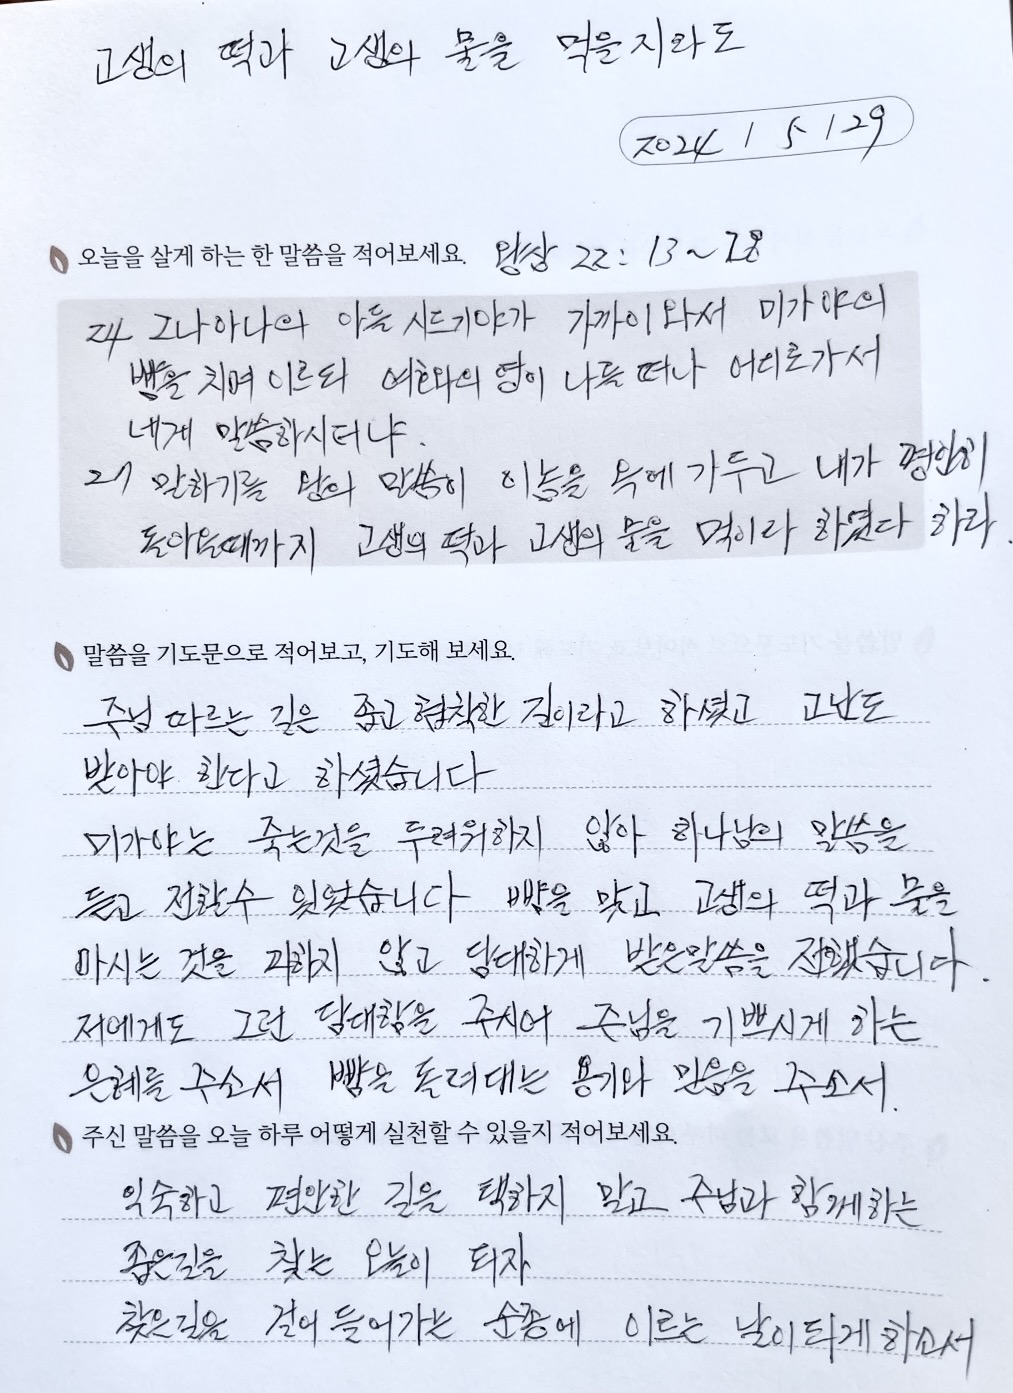 고생의 떡과 고생의 물을 먹을지라도
2024 / 5 / 29
오늘을 살게 하는 한 말씀을 적어보세요. 왕상 22: 13~28
24 그나아나의 아들 시드기야가 가까이 와서 미가야의
뺨을 치며 이르되 여호와의 영이 나를 떠나 어디로가서
네게 말씀하시더냐.
27 말하기를 왕의 말씀이 이놈을 옥에 가두고 내가 평안히
돌아올때까지 고생의 떡과 고생의 물을 먹이라 하였다 하라.
말씀을 기도문으로 적어보고, 기도해 보세요.
주님 따르는 길은 좁고 협착한 길이라고 하셨고 고난도
받아야 한다고 하셨습니다
미가야는 죽는것을 두려워하지 않아 하나님의 말씀을
듣고 전할수 있었습니다 뺨을 맞고 고생의 떡과 물을
마시는 것을 피하지 않고 담대하게 받은말씀을 전했습니다.
저에게도 그런 담대함을 주시어 주님을 기쁘시게 하는
은혜를 주소서 뺨을 돌려대는 용기와 믿음을 주소서.
주신 말씀을 오늘 하루 어떻게 실천할 수 있을지 적어보세요.
익숙하고 편안한 길을 택하지 말고 주님과 함께하는
좁은길을 찾는 오늘이 되자
찾은길을 걸어 들어가는 순종에 이르는 날이되게 하소서